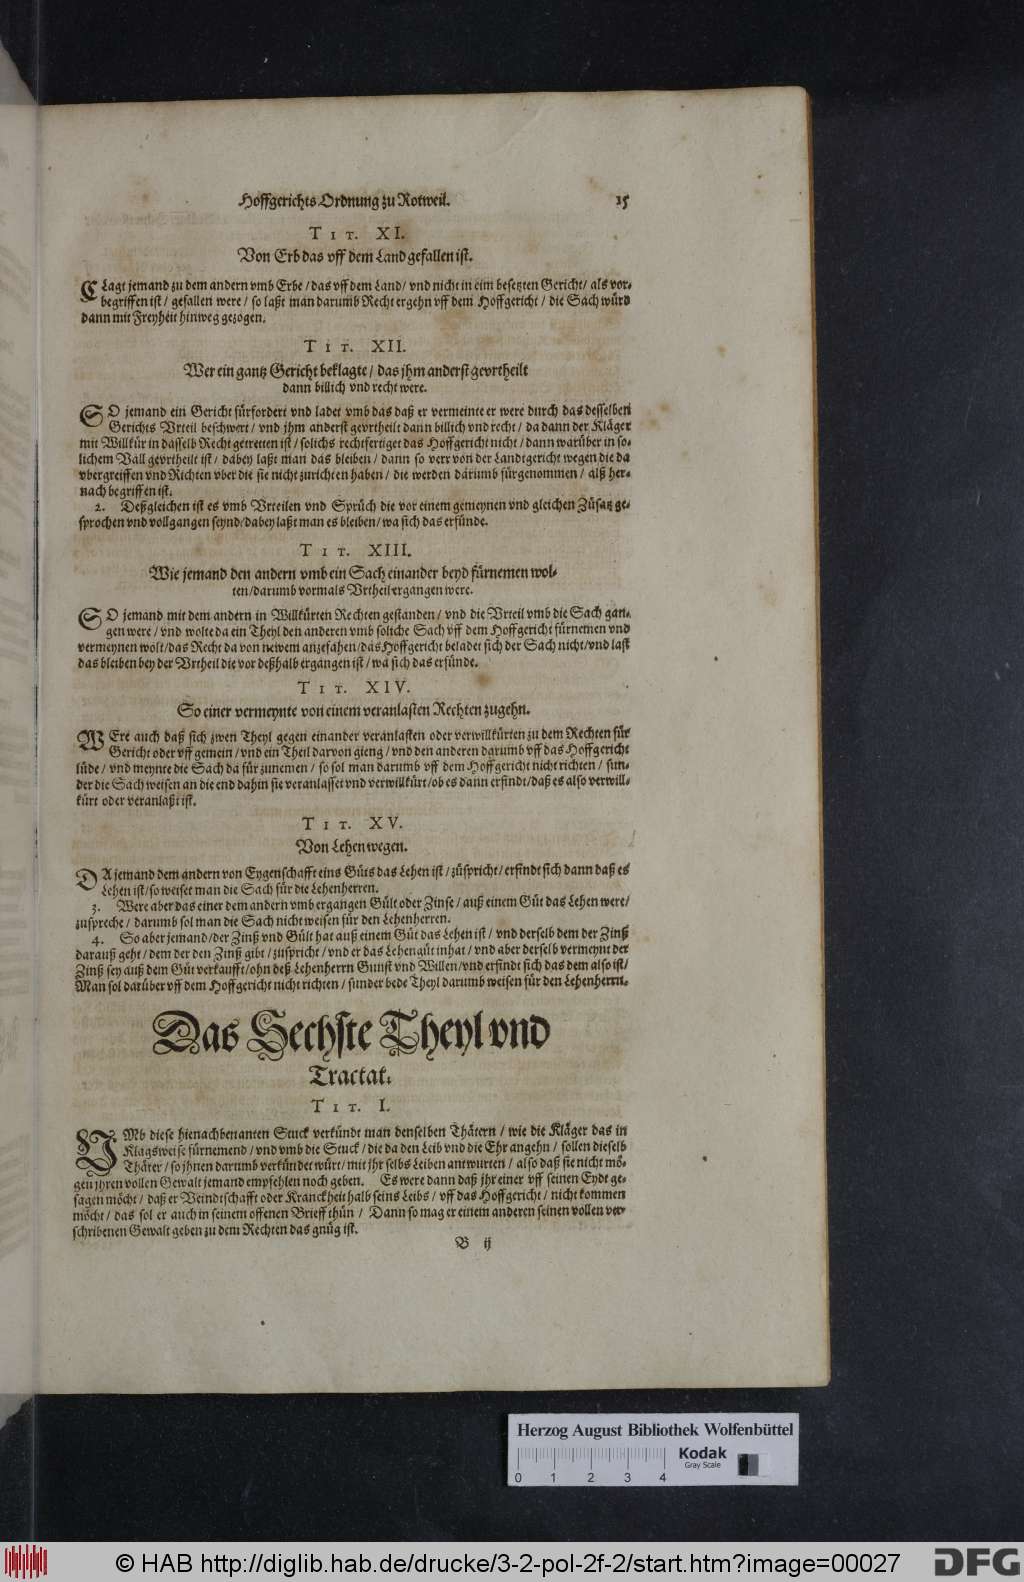 Hoffgerichts Ordnung zu Rotweil. 15
TIT. XI.
Von Erb das vff dem Land gefallen ist.
CLagt jemand zu dem andern vmb Erbe / das vff dem Land / vnd nicht in eim besetzten Gericht / als vor-
begriffen ist / gefallen were / so laßt man darumb Recht ergehn vff dem Hoffgericht / die Sach würd
dann mit Freyheit hinweg gezogen.
TIT. XII.
Wer ein gantz Gericht beklagte / das jhm anderst gevrtheilt
dann billich vnd recht were.
SO jemand ein Gericht fürfordert vnd ladet vmb das daß er vermeinte er were durch das desselben
Gerichts Vrteil beschwert / vnd jhm anderst gevrtheilt dann billich vnd recht / da dann der Kläger
mit Willkür in dasselb Recht getretten ist / solichs rechtfertiget das Hoffgericht nicht / dann warüber in so-
lichem Vall gevrtheilt ist / dabey laßt man das bleiben / dann so verr von der Landtgericht wegen die da
vbergreiffen vnd Richten vber die sie nicht zurichten haben / die werden darumb fürgenommen / alß her-
nach begriffen ist.
2. Deßgleichen ist es vmb Vrteilen vnd Sprüch die vor einem gemeynen vnd gleichen Zůsatz ge-
sprochen vnd vollgangen seynd / dabey laßt man es bleiben / wa sich das erfünde.
TIT. XIII.
Wie jemand den andern vmb ein Sach einander beyd fürnemen wol-
ten / darumb vormals Vrtheil ergangen were.
SO jemand mit dem andern in Willkürten Rechten gestanden / vnd die Vrteil vmb die Sach gan-
gen were / vnd wolte da ein Theyl den anderen vmb soliche Sach vff dem Hoffgericht fürnemen vnd
vermeynen wolt / das Recht da von newem anzefahen / das Hoffgericht beladet sich der Sach nicht / vnd laßt
das bleiben bey der Vrtheil die vor deßhalb ergangen ist / wa sich das erfünde.
TIT. XIV.
So einer vermeynte von einem veranlasten Rechten zugehn.
WEre auch daß sich zwen Theyl gegen einander veranlasten oder verwillkürten zu dem Rechten für
Gericht oder vff gemein / vnd ein Theil darvon gieng / vnd den anderen darumb vff das Hoffgericht
lüde / vnd meynte die Sach da für zunemen / so sol man darumb vff dem Hoffgericht nicht richten / sun-
der die Sach weisen an die end dahin sie veranlasset vnd verwillkürt / ob es dann erfindt / daß es also verwill-
kürt oder veranlaßt ist.
TIT. XV.
Von Lehen wegen.
DA jemand dem andern von Eygenschafft eins Gůts das Lehen ist / zůspricht / erfindt sich dann daß es
Lehen ist / so weiset man die Sach für die Lehenherren.
3. Were aber das einer dem andern vmb ergangen Gült oder Zinse / auß einem Gůt das Lehen were /
zuspreche / darumb sol man die Sach nicht weisen für den Lehenherren.
4. So aber jemand / der Zinß vnd Gült hat auß einem Gůt das Lehen ist / vnd derselb dem der Zinß
darauß geht / dem der den Zinß gibt / zuspricht / vnd er das Lehengůt inhat / vnd aber derselb vermeynt der
Zinß sey auß dem Gůt verkaufft / ohn deß Lehenherrn Gunst vnd Willen / vnd erfindt sich das dem also ist /
Man sol darüber vff dem Hoffgericht nicht richten / sunder bede Theyl darumb weisen für den Lehenherrn.
Das Sechste Theyl vnd
Tractat.
TIT. I.
VMb diese hienachbenanten Stuck verkündt man denselben Thätern / wie die Kläger das in
Klagsweise fürnemend / vnd vmb die Stuck / die da den Leib vnd die Ehr angehn / sollen dieselb
Thäter / so jhnen darumb verkündet würt / mit jhr selbs Leiben antwurten / also daß sie nicht mö-
gen jhren vollen Gewalt jemand empfehlen noch geben. Es were dann daß jhr einer vff seinen Eydt ge-
sagen möcht / daß er Veindtschafft oder Kranckheit halb seins Leibs / vff das Hoffgericht / nicht kommen
möcht / das sol er auch in seinem offenen Brieff thůn / Dann so mag er einem anderen seinen vollen ver-
schribenen Gewalt geben zu dem Rechten das gnůg ist.
B ij
Herzog August Bibliothek Wolfenbüttel
Kodak
Gray Scale
0 1 2 3 4
© HAB http://diglib.hab.de/drucke/3-2-pol-2f-2/start.htm?image=00027
DFG